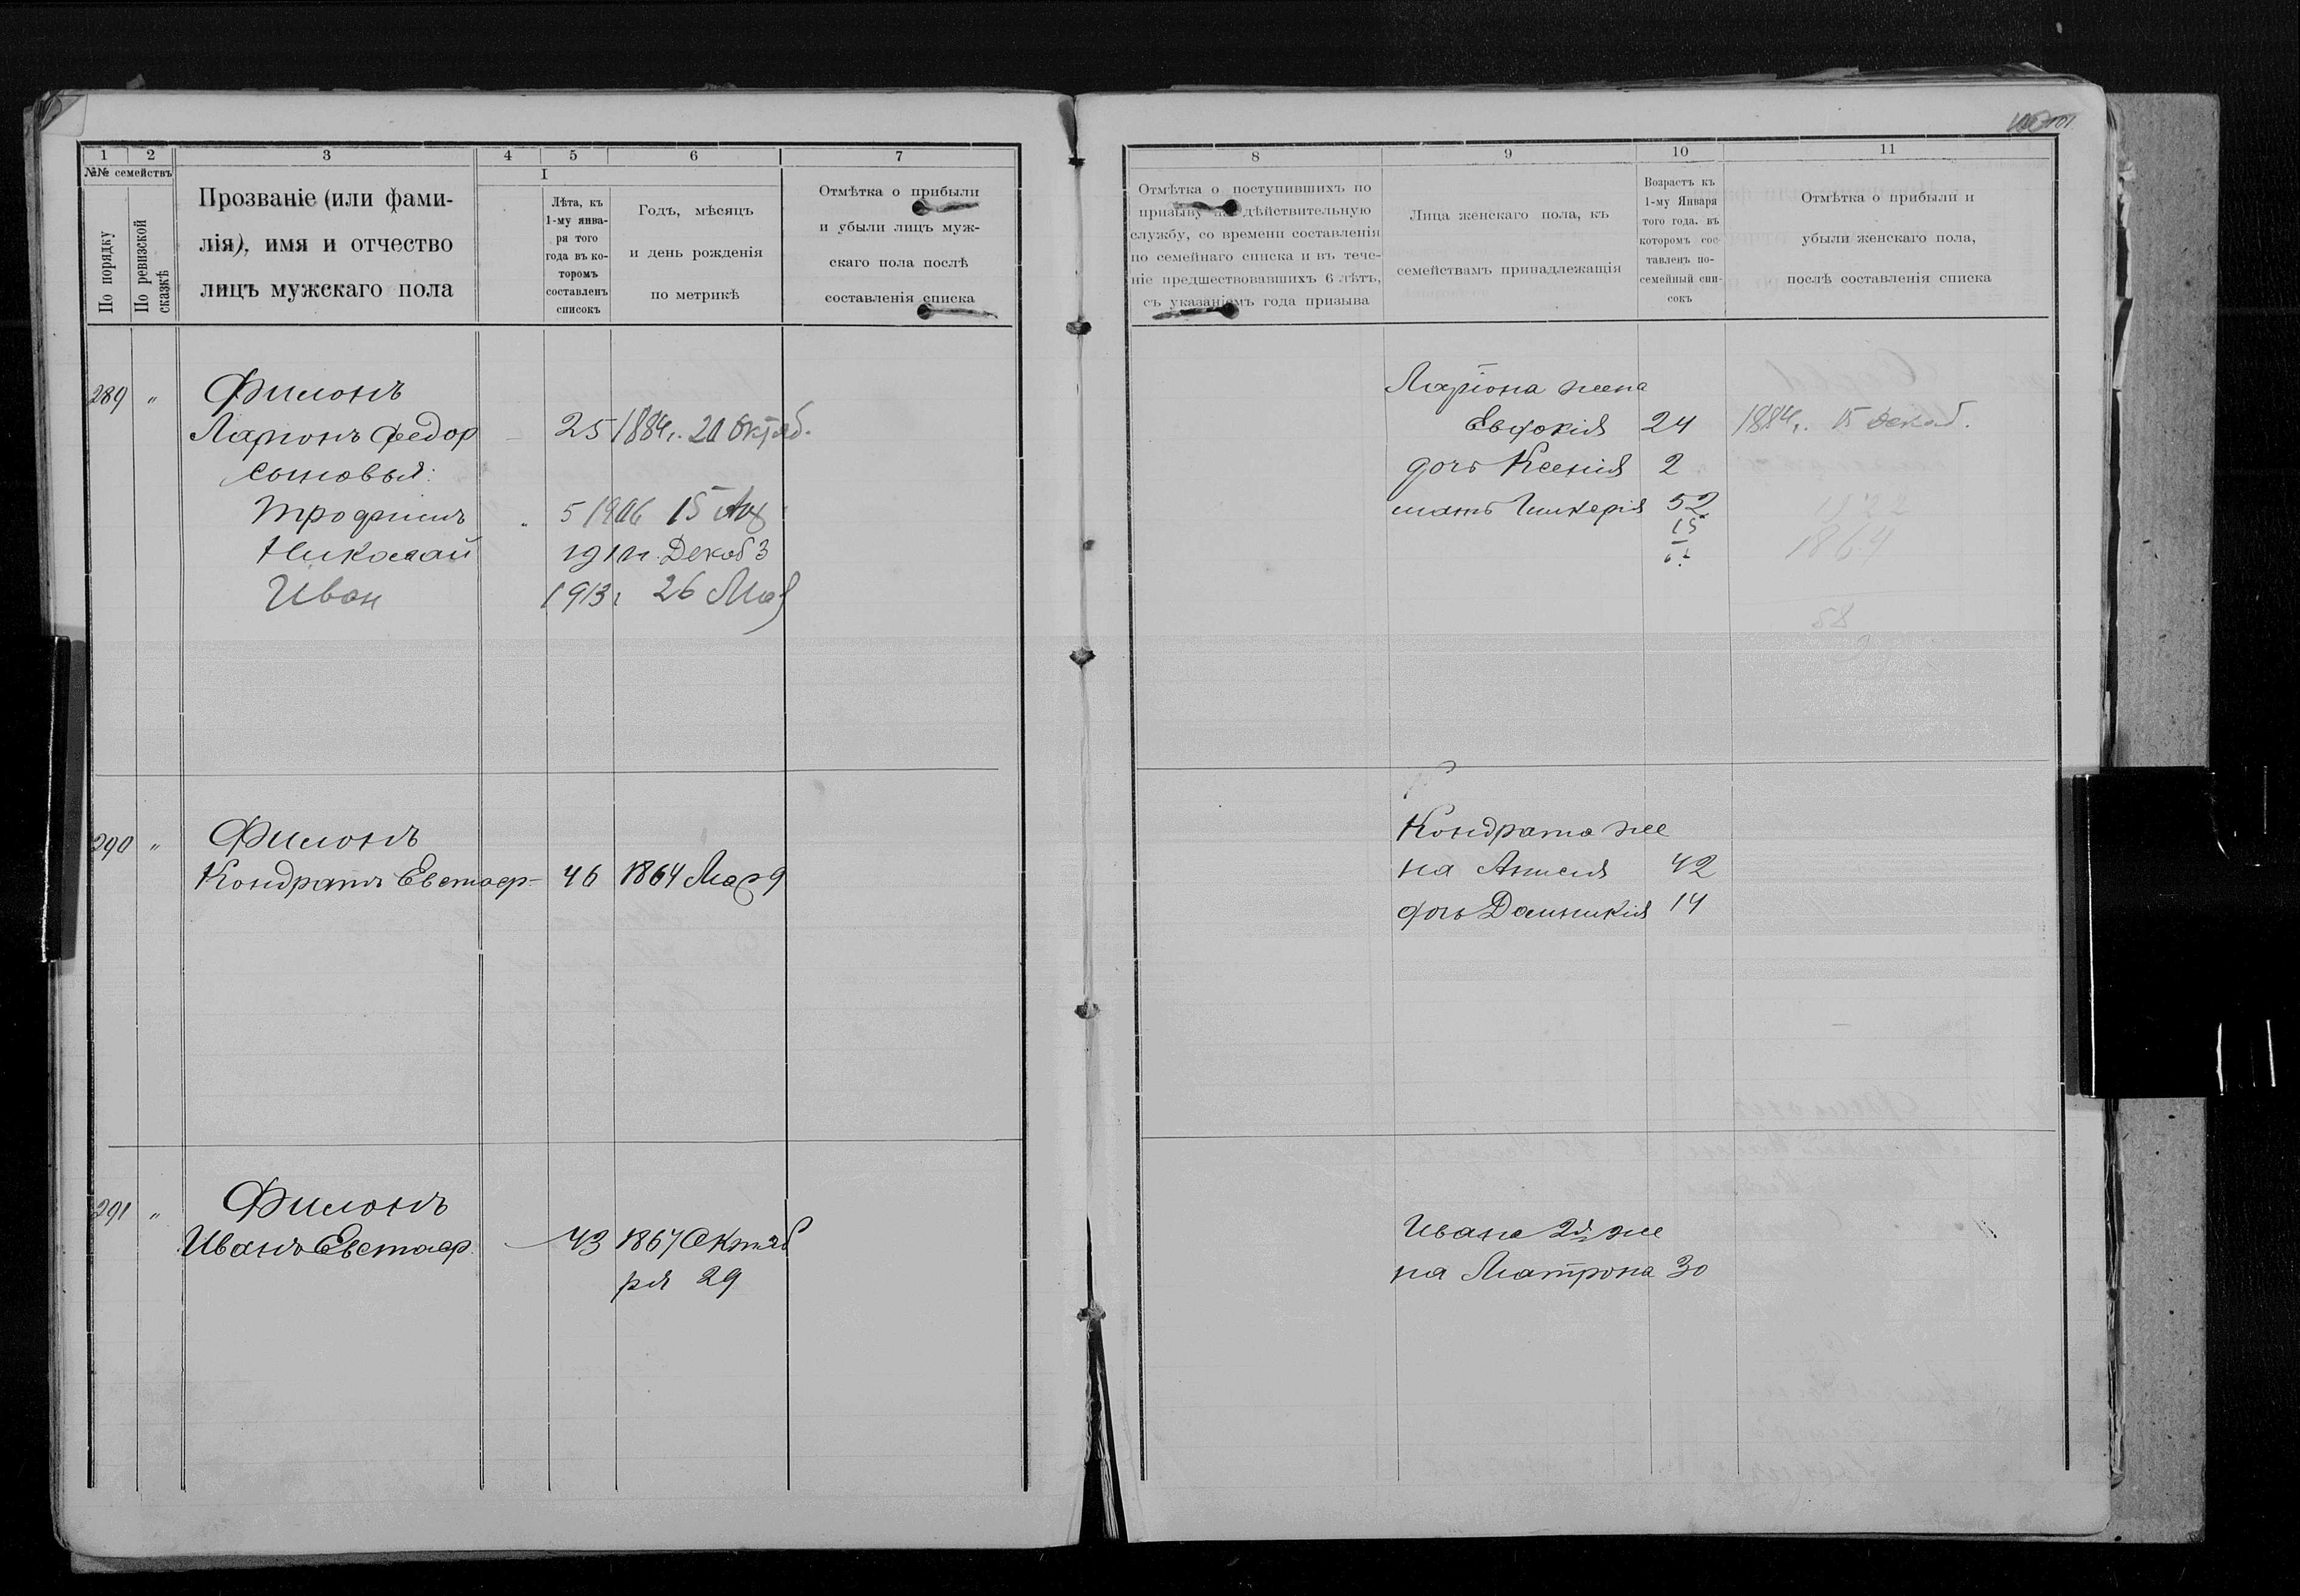 101
1 2 3 4 5 6 7
№№ семействъ
По порядку
По ревизской сказкѣ
Прозваніе (или фами-
лія), имя и отчество
лицъ мужскаго пола
I
Лѣта, къ
1-му янва-
ря того
года въ ко-
торомъ
составленъ
списокъ
Годъ, мѣсяцъ
и день рожденія
по метрикѣ
Отмѣтка о прибыли
и убыли лицъ муж-
скаго пола послѣ
составленія списка
289 " Филонъ
Ларіонъ Федор 25 1884г. 21 Октяб.
сыновья:
Трофимъ 5 1906 15 Авг
Николай 191 г. Декаб 3
Иван 1913 г 26 Мая
290 " Филонъ
Кондратъ Евстаф- 46 1864 Мар 9
291 " Филонъ
Иванъ Евстаф. 43 1867 Октяб
ря 29
8 9 10 11
Отмѣтка о поступившихъ по
призыву на дѣйствительную
службу, со времени составленія
по семейнаго списка и въ тече-
ніе предшествовавшихъ 6 лѣтъ,
съ указаніемъ года призыва
Лица женскаго пола, къ
семействамъ принадлежащія
Возрастъ къ
1-му Января
того года. въ
которомъ сос-
тавленъ по-
семейный спи-
сокъ
Отмѣтка о прибыли и
убыли женскаго пола,
послѣ составленія списка
Ларіона жена
Евдокія 24 1884г. 15 Декаб.
дочь Ксенія 2
мать Гликерія 52
15
1864
58
Кондрата же
на Анисія 42
дочь Домникія 14
Ивана 2я же
на Матрона 30